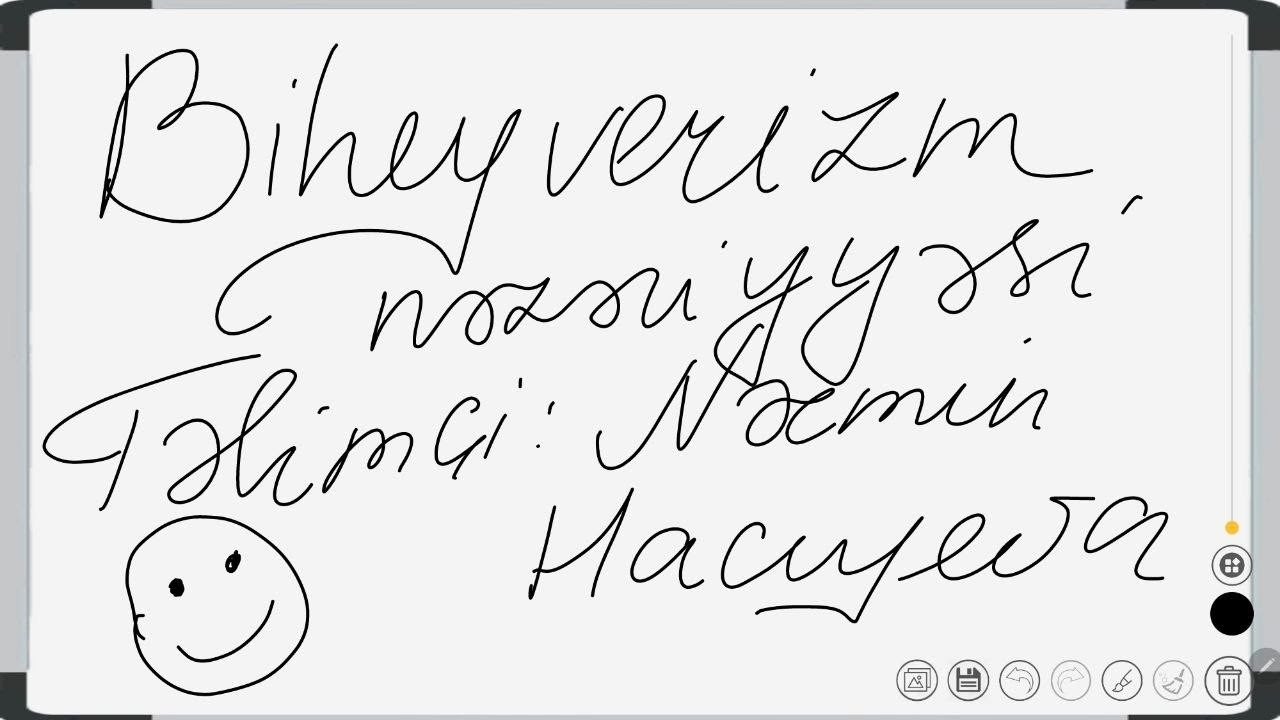 Biheyverizm
nəzəriyyəsi
Təlimçi: Nərmin
Hacıyeva